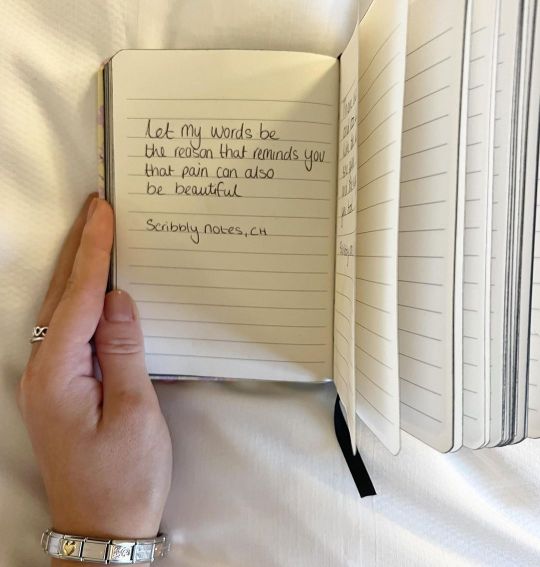 Let my words be
the reason that reminds you
that pain can also
be beautiful
Scribbly notes, CH